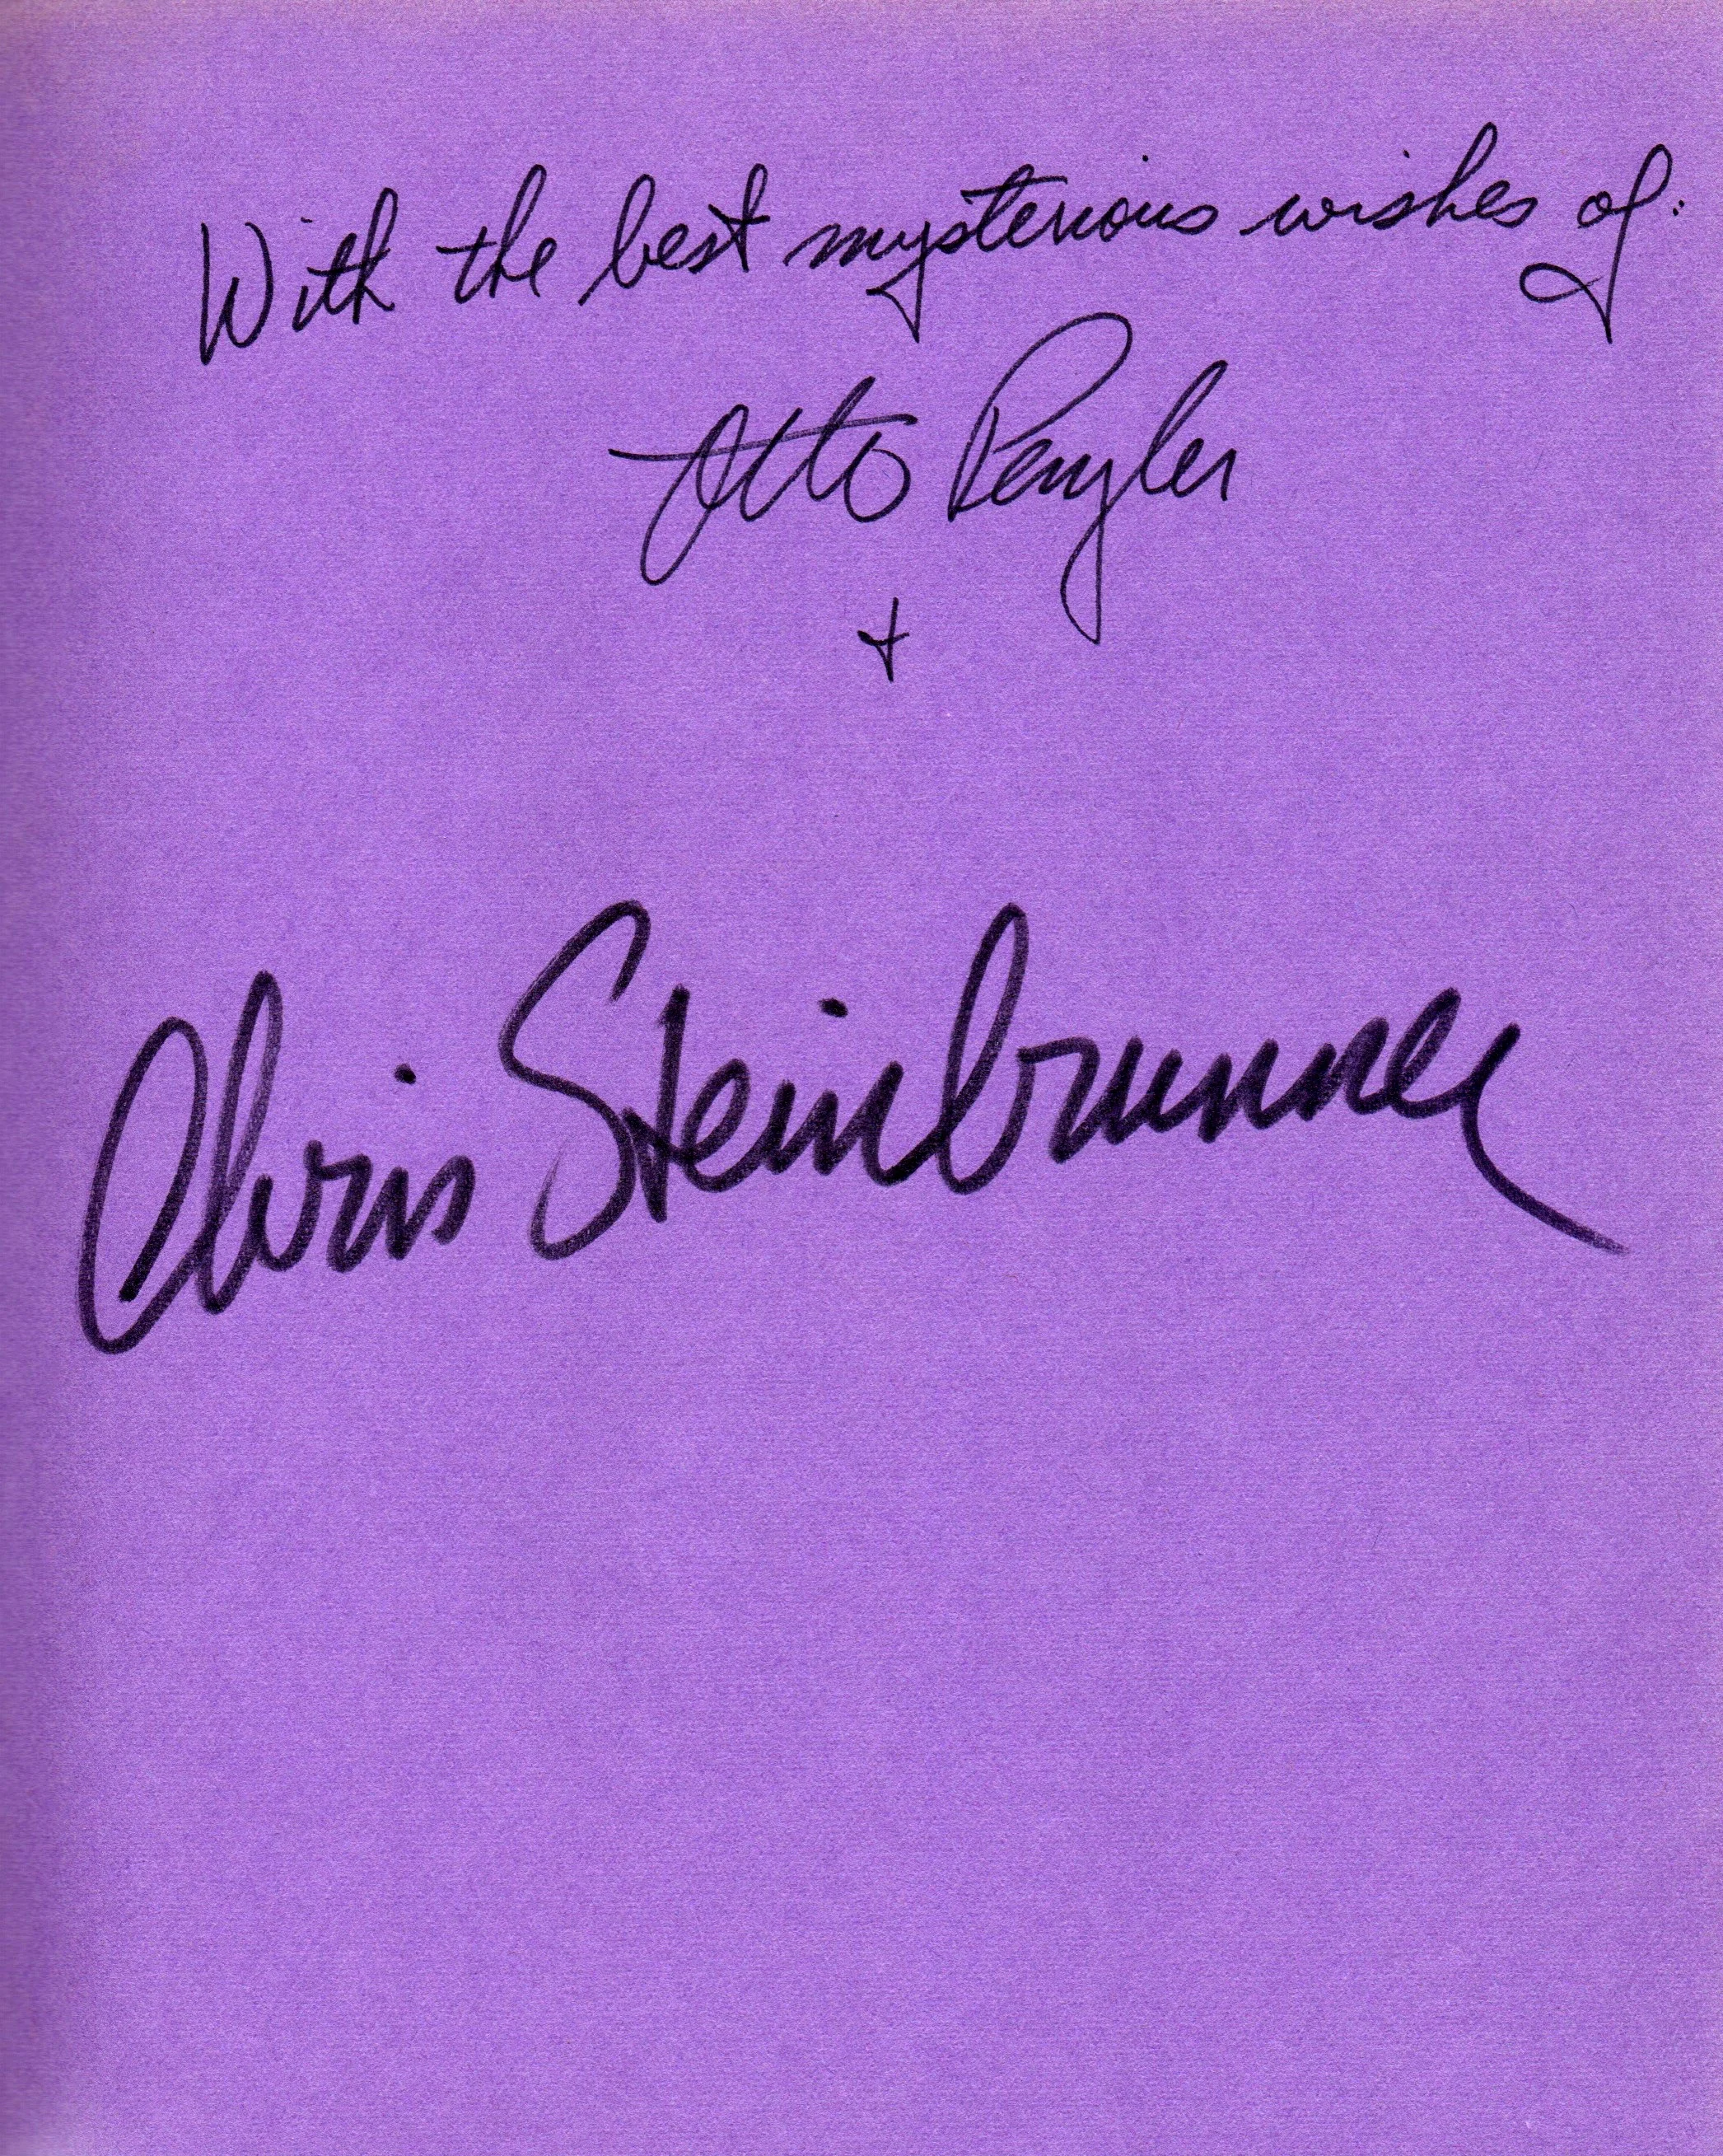 With the best mysterious wishes of:
Otto Penzler
+
Chris Steinbrunner